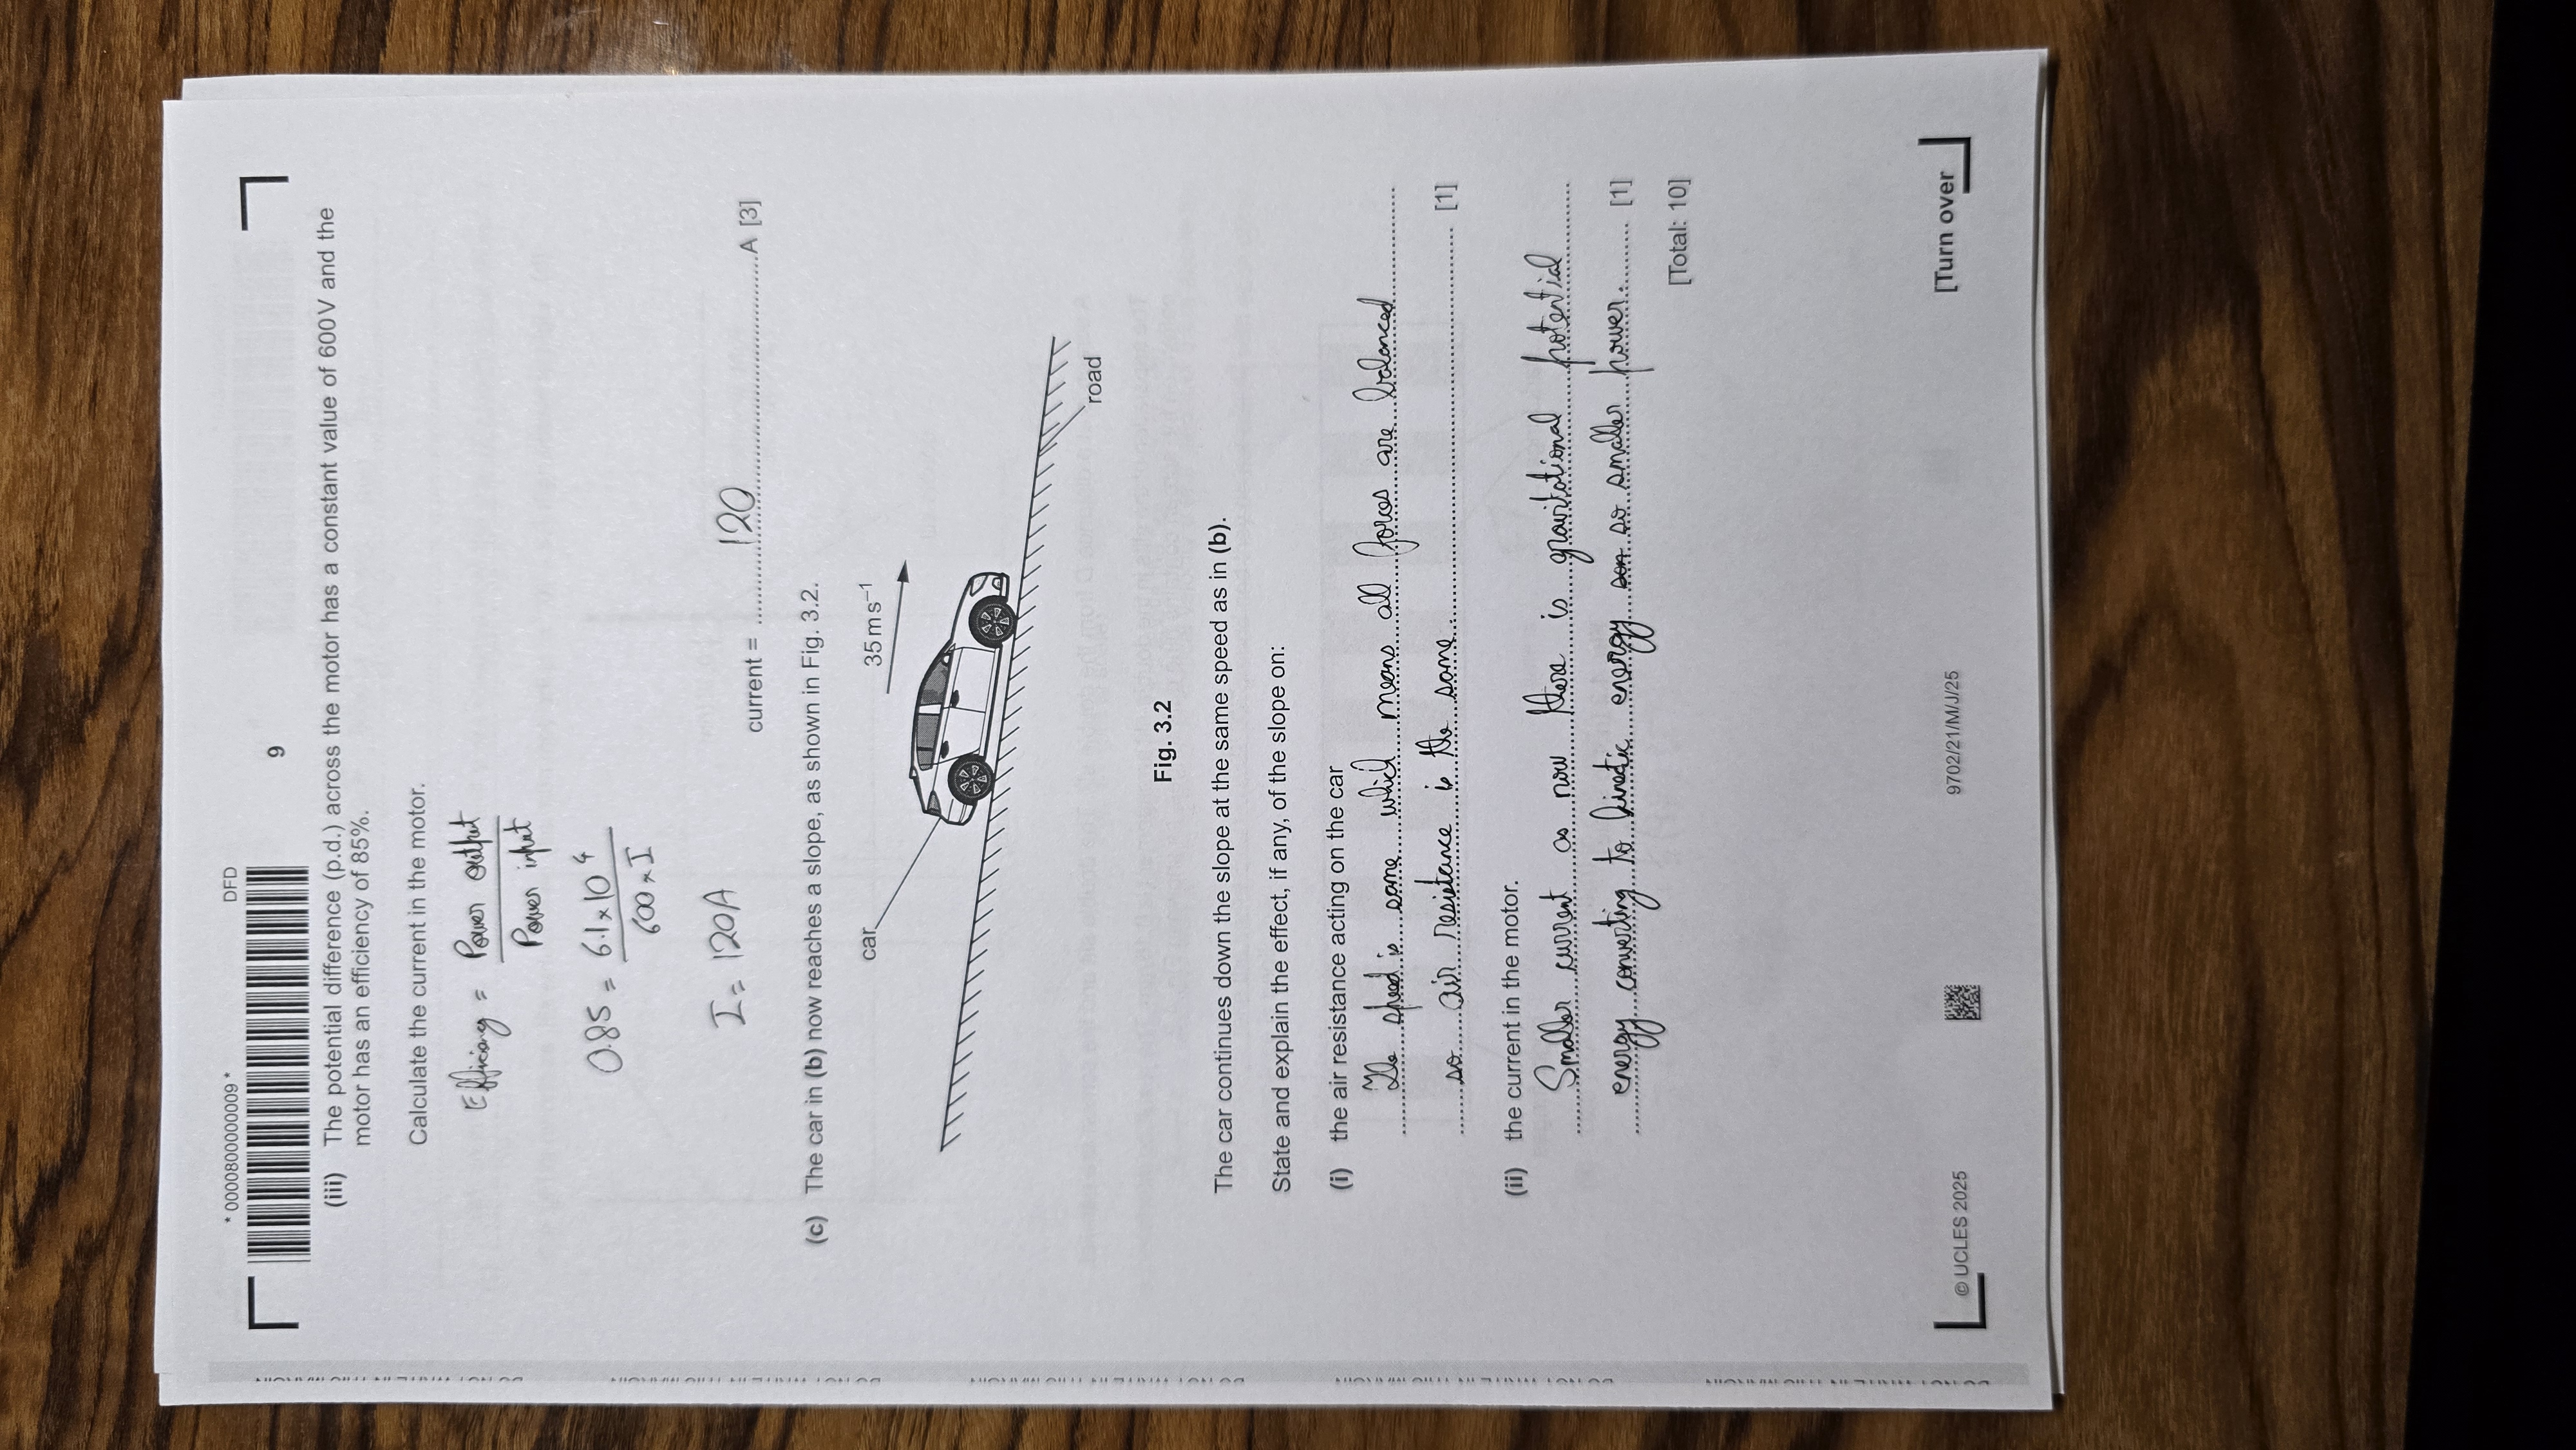 * 0000800000009 *
DFD
9
(iii) The potential difference (p.d.) across the motor has a constant value of 600V and the
motor has an efficiency of 85%.
Calculate the current in the motor.
Efficiency = Power output
Power input
0.85 = 6.1 × 10⁴
600 × I
I = 120A
current = 120 A [3]
(c) The car in (b) now reaches a slope, as shown in Fig. 3.2.
car
35 m s⁻¹
road
Fig. 3.2
The car continues down the slope at the same speed as in (b).
State and explain the effect, if any, of the slope on:
(i) the air resistance acting on the car
The speed is same which means all forces are balanced
so air resistance is the same. [1]
(ii) the current in the motor.
Smaller current as now there is gravitational potential
energy converting to kinetic energy so smaller power. [1]
[Total: 10]
© UCLES 2025
9702/21/M/J/25
[Turn over